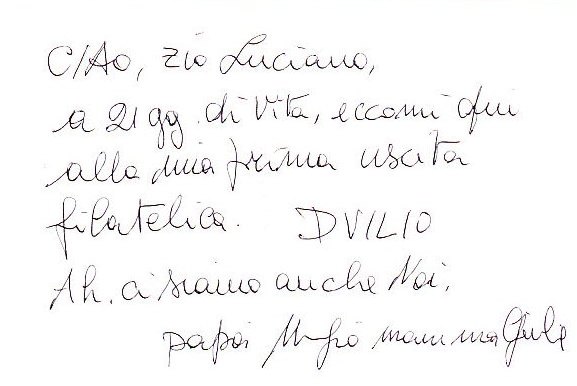 CIAO, zio Luciano,
a 21 gg. di vita, eccomi qui
alla mia prima uscita
filatelica. DVILIO
Ah, ci siamo anche Noi,
papà mamma